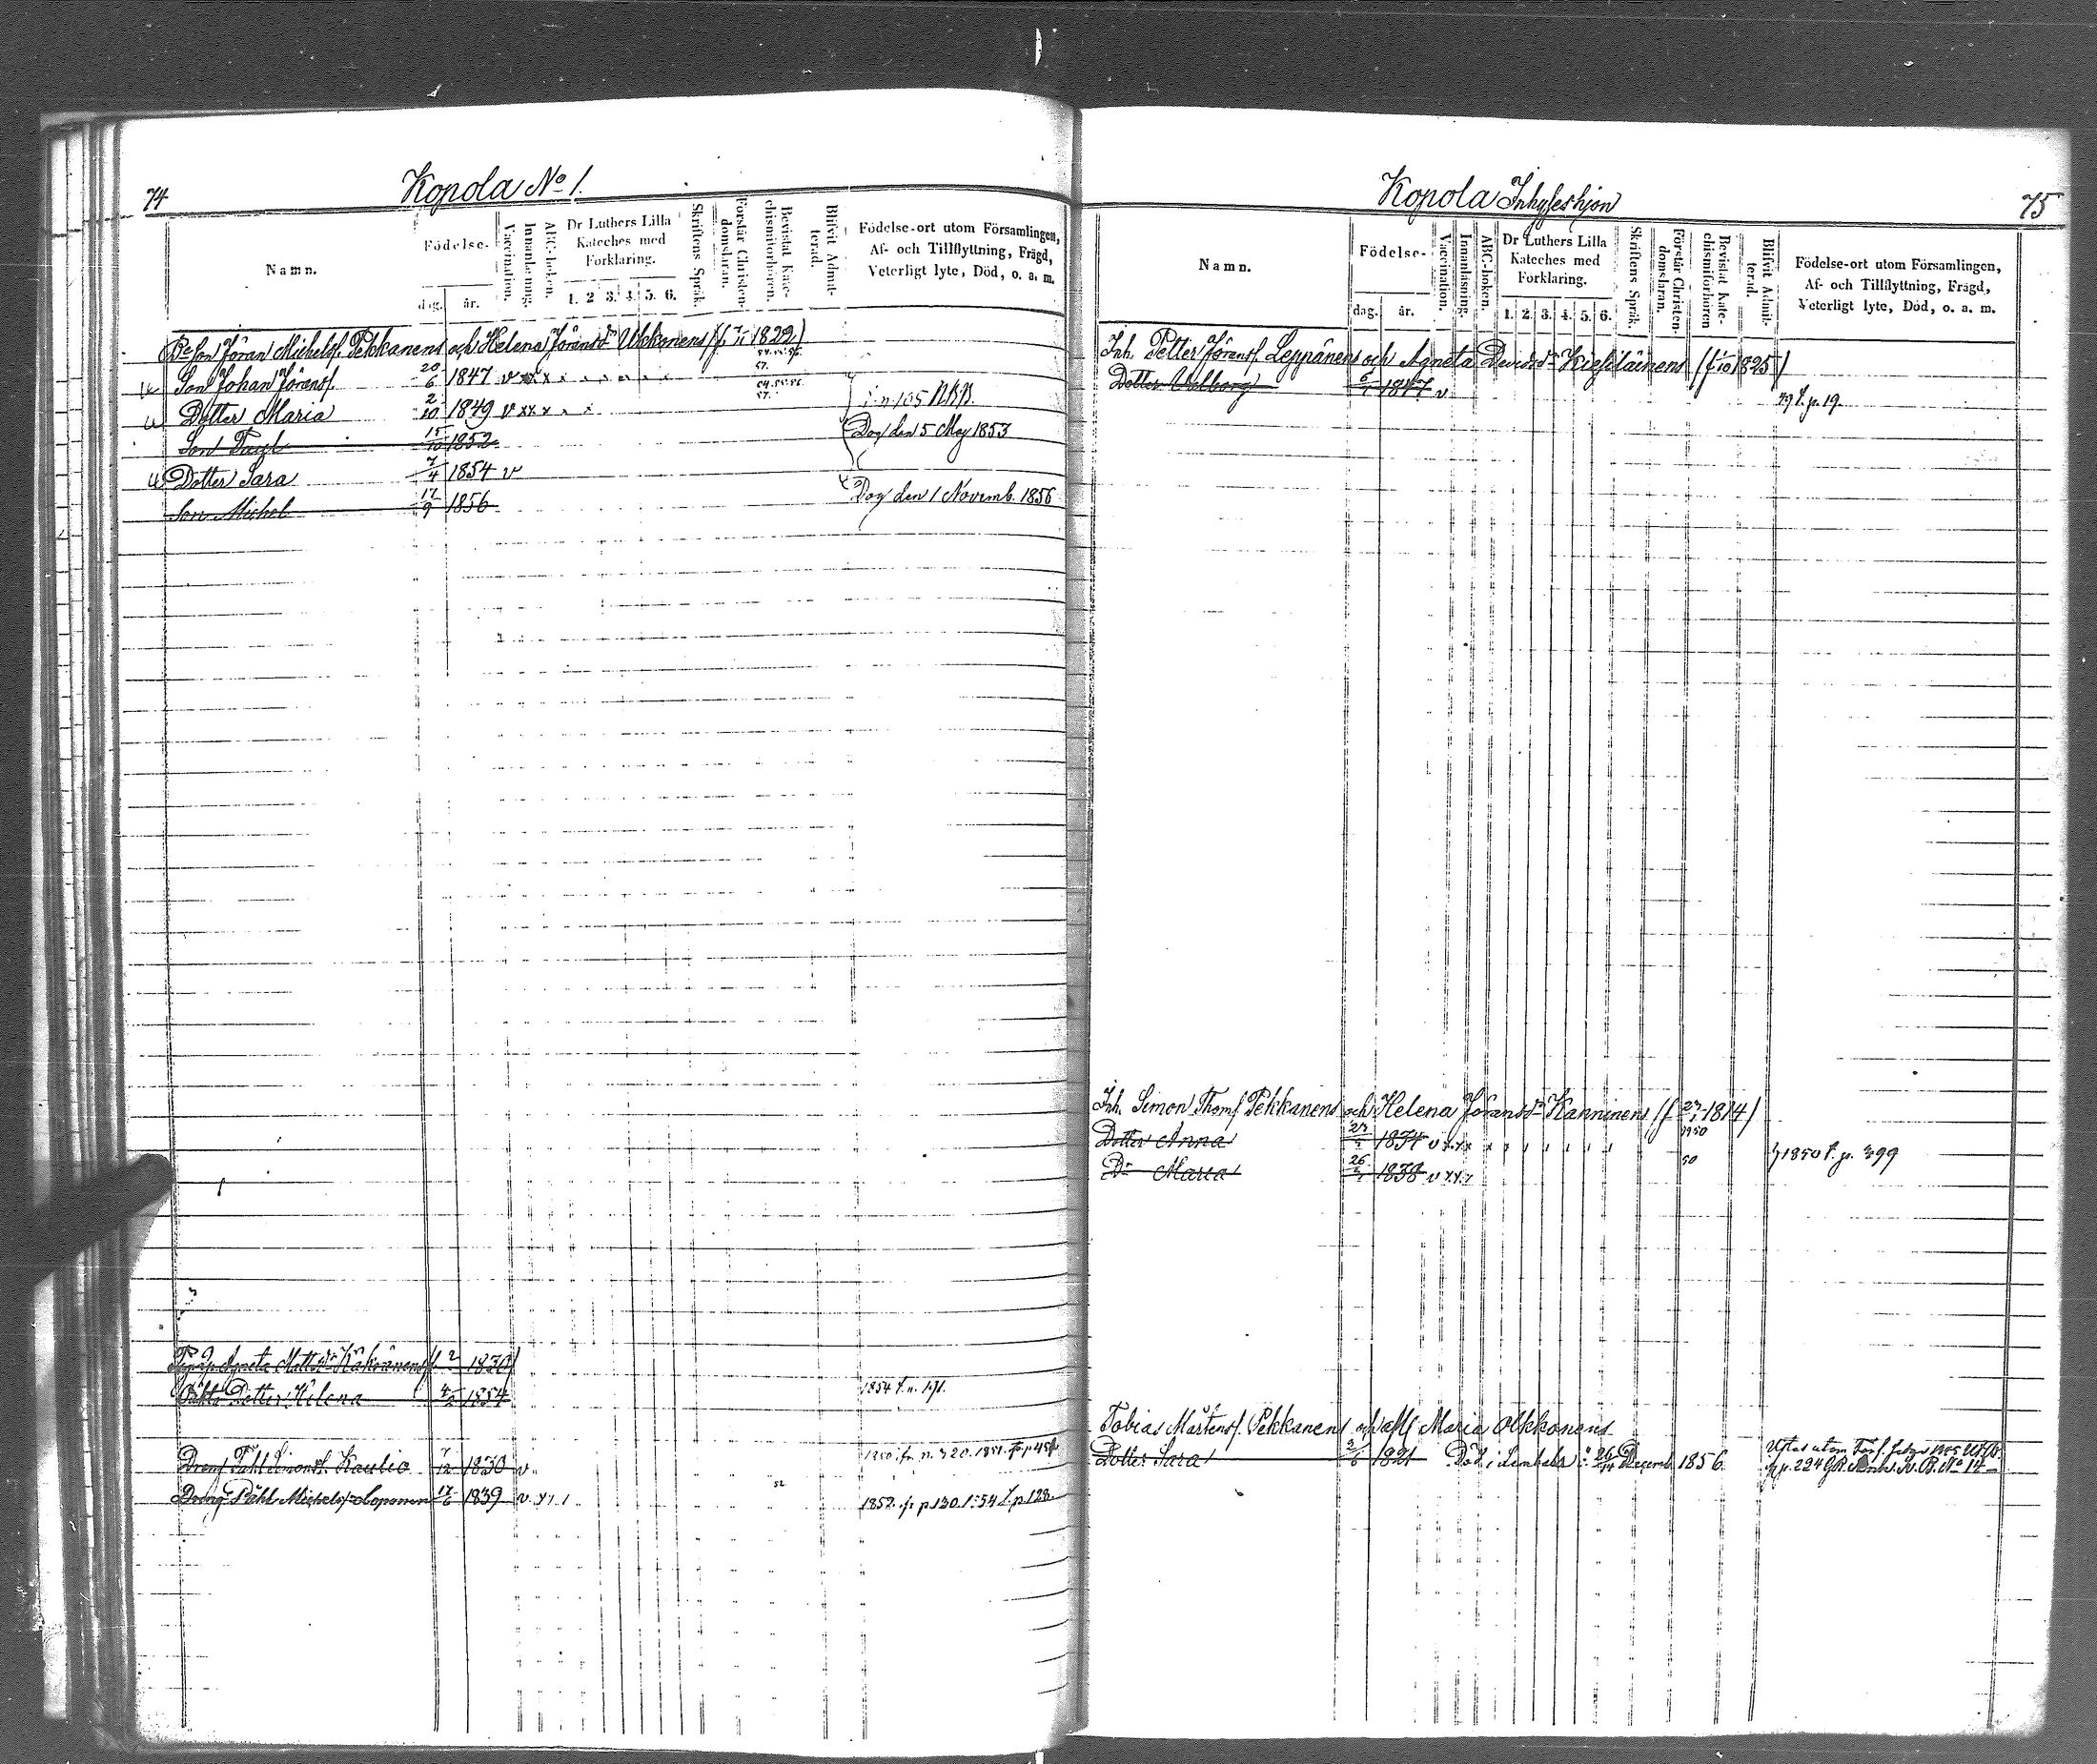 74
Kopola No 1.
Namn.
Födelse-
dag. år.
Vaccination.
Innanläsning.
ABC-boken.
Dr Luthers Lilla Kateches med Forklaring.
1. 2 3. 4. 5. 6.
Skriftens Språk.
Forstår Christendomslaran.
Bevistat Katechismiförhören.
Blifvit Admitterad.
Födelse-ort utom Församlingen,
Af- och Tillflyttning, Frägd,
Veterligt lyte, Död, o. a. m.
Son Jöran Michelsf. Pekkanens och Helena Jöransdr Ukkonens (f. 1822)
Son Johan Jöransf. 20/6 1847 v xx x x x x x x x
57.
Dotter Maria 2/10 1849 v xx x x x
54.55.56.
57.
Son Pavel 15/10 1852 Dog den 5 Maj 1853
Dotter Sara 7/4 1854 v
Son Michel 17/9 1856 Dog den 1 Novemb. 1856
Agneta Mattsdr 1830)
Dotter Helena 1854 1854 t. n. 191.
Dreng Påhl Simonsf. Kaulio 7/12 1830 v
Dreng Påhl Michelsf. Loponen 17/6 1839 v 52 1852. fr p 130. 1854 t. p 128.
75
Kopola Inhyseshjon
Namn.
Födelse-
dag. år.
Vaccination.
Innanlasning.
ABC-boken.
Dr Luthers Lilla Kateches med Forklaring.
1. 2. 3. 4. 5. 6.
Skriftens Språk.
Förstår Christendomslaran.
Bevistat Katechismiforhoren
Blifvit Admitterad.
Födelse-ort utom Församlingen,
Af- och Tillflyttning, Frägd,
Veterligt lyte, Död, o. a. m.
Inh. Petter Jöransf. Leppänens och Agneta Davidsdr Kiesiläinens (f. 1825)
Dotter Valborg 1847 v 49 t. p. 19.
Inh. Simon Thomsf Pekkanens och Helena Jöransdr Kanninens (f. 1814)
Dotter Anna 1834 v x x x 1950
Dr Maria 26 1838 v x x x 50 1850 t. p. 399
Tobias Mårtensf. Pekkanens och afl Maria Olkkonens
Dotter Sara 2/6 1821 Död i Decemb 1856